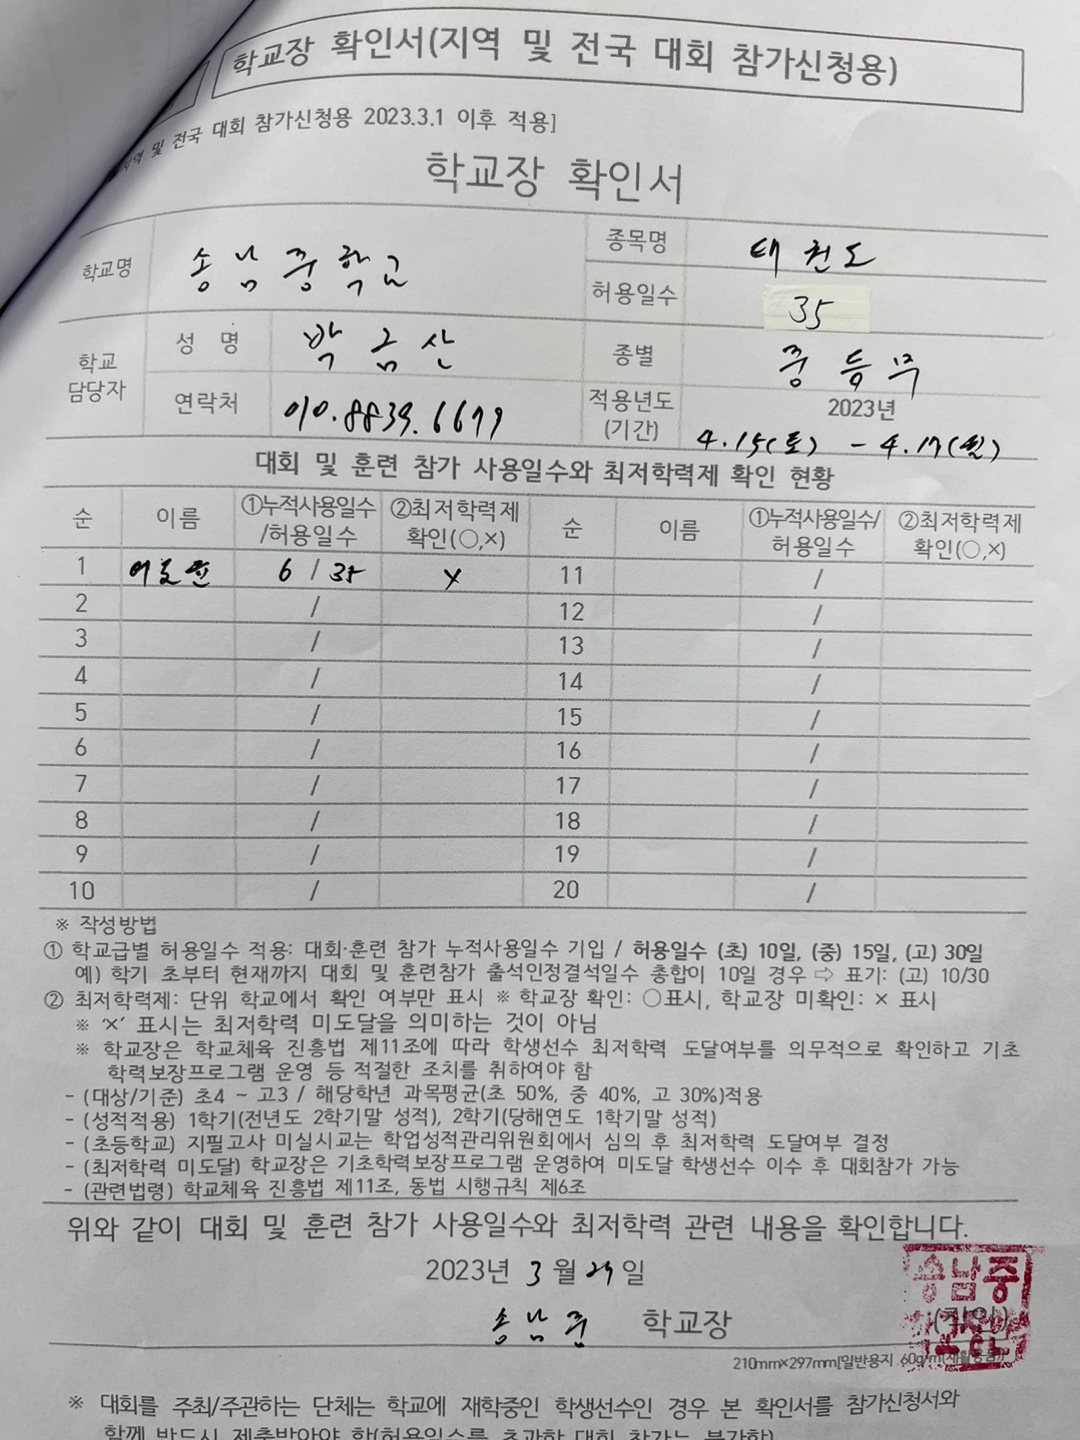 학교장 확인서(지역 및 전국 대회 참가신청용)
지역 및 전국 대회 참가신청용 2023.3.1 이후 적용]
학교장 확인서
학교명 송남중학교 종목명 태권도
허용일수 35
학교 담당자 성 명 박금산 종별 중등부
연락처 010.8839.6679 적용년도 (기간) 2023년
4.15(토) - 4.17(월)
대회 및 훈련 참가 사용일수와 최저학력제 확인 현황
순 이름 ①누적사용일수 /허용일수 ②최저학력제 확인(○,×) 순 이름 ①누적사용일수/ 허용일수 ②최저학력제 확인(○,×)
1 6 / 35 × 11 /
2 / 12 /
3 / 13 /
4 / 14 /
5 / 15 /
6 / 16 /
7 / 17 /
8 / 18 /
9 / 19 /
10 / 20 /
※ 작성방법
① 학교급별 허용일수 적용: 대회·훈련 참가 누적사용일수 기입 / 허용일수 (초) 10일, (중) 15일, (고) 30일
예) 학기 초부터 현재까지 대회 및 훈련참가 출석인정결석일수 총합이 10일 경우 ⇨ 표기: (고) 10/30
② 최저학력제: 단위 학교에서 확인 여부만 표시 ※ 학교장 확인: ○표시, 학교장 미확인: × 표시
※ '×' 표시는 최저학력 미도달을 의미하는 것이 아님
※ 학교장은 학교체육 진흥법 제11조에 따라 학생선수 최저학력 도달여부를 의무적으로 확인하고 기초
학력보장프로그램 운영 등 적절한 조치를 취하여야 함
- (대상/기준) 초4 ~ 고3 / 해당학년 과목평균(초 50%, 중 40%, 고 30%)적용
- (성적적용) 1학기(전년도 2학기말 성적), 2학기(당해연도 1학기말 성적)
- (초등학교) 지필고사 미실시교는 학업성적관리위원회에서 심의 후 최저학력 도달여부 결정
- (최저학력 미도달) 학교장은 기초학력보장프로그램 운영하여 미도달 학생선수 이수 후 대회참가 가능
- (관련법령) 학교체육 진흥법 제11조, 동법 시행규칙 제6조
위와 같이 대회 및 훈련 참가 사용일수와 최저학력 관련 내용을 확인합니다.
2023년 3월 29일
송남중 학교장 (직인)
송남중
210mm×297mm[일반용지 60g/㎡(재활용품)]
※ 대회를 주최/주관하는 단체는 학교에 재학중인 학생선수인 경우 본 확인서를 참가신청서와
함께 반드시 제출받아야 함(허용일수를 초과한 대회 참가는 불가함)